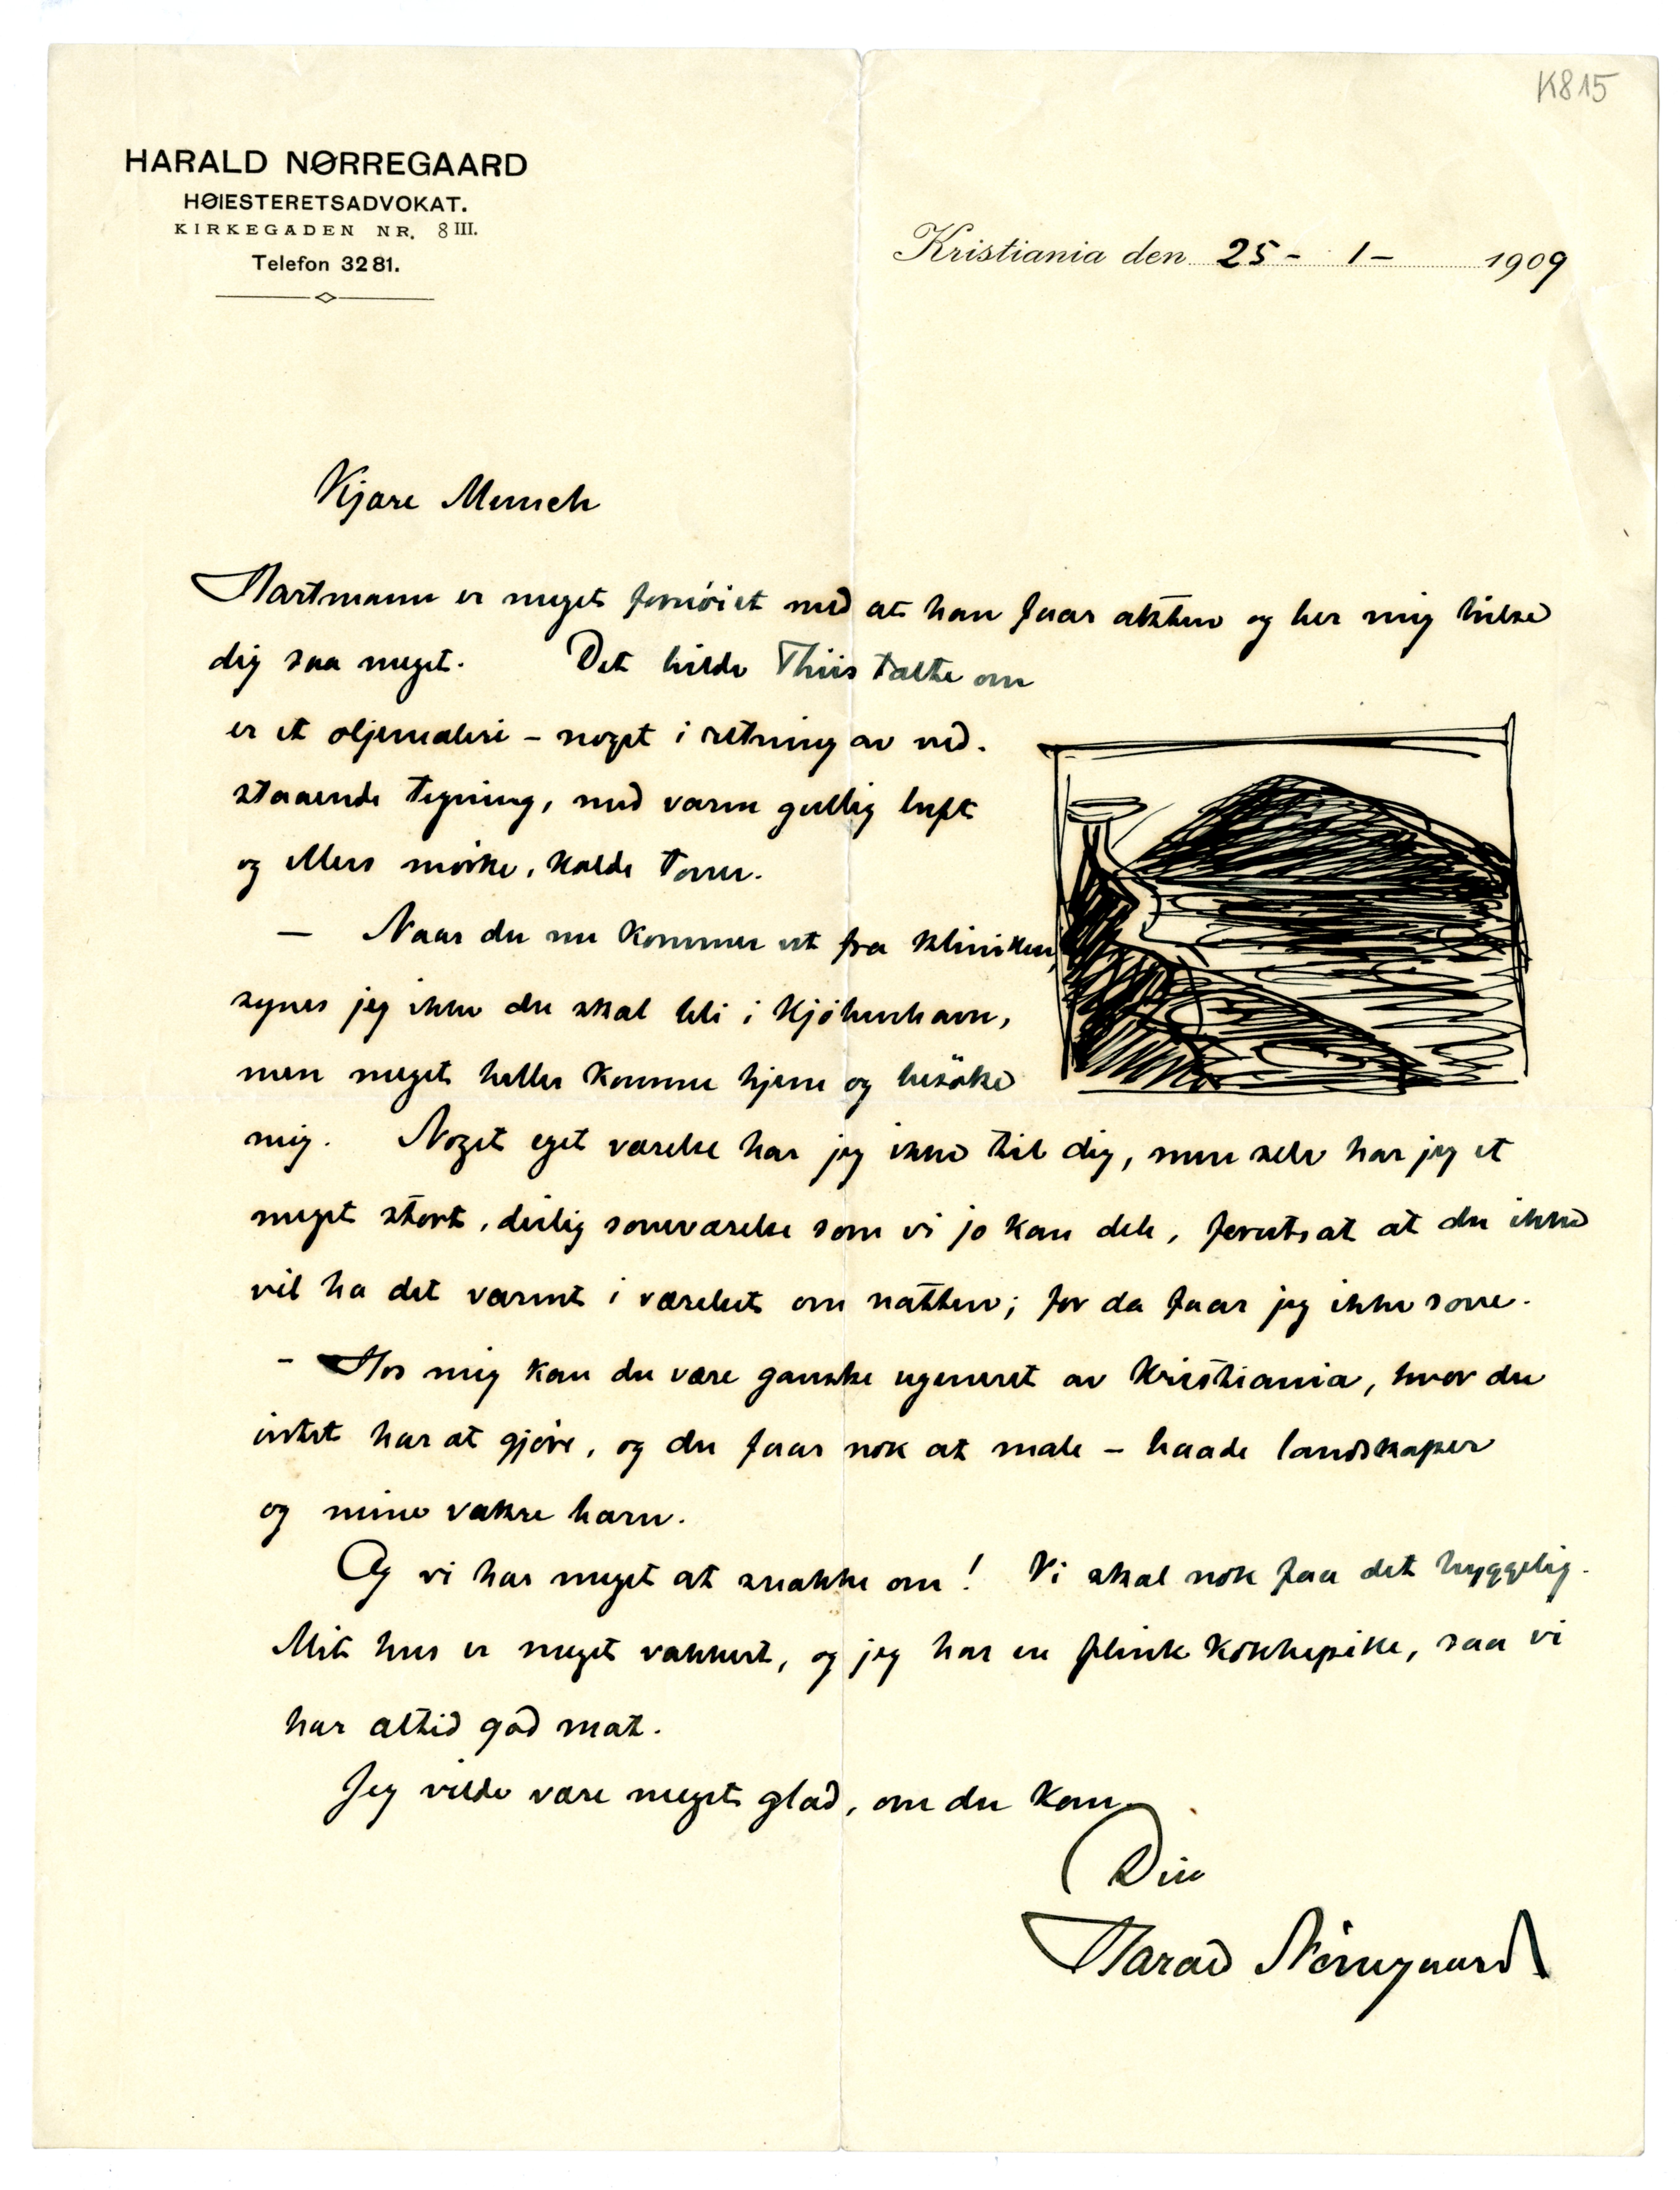 K815
HARALD NØRREGAARD
HØIESTERETSADVOKAT.
KIRKEGADEN NR. 8 III.
Telefon 3281.
Kristiania den 25 - 1 - 1909
Kjære Munch
Hartmann er meget fornöiet med at han faar aktten og ber mig hilse
dig saa meget. Det bilde Thiis talte om
er et oljemaleri – noget i retning av ned-
staaende tegning, med varm gullig luft
og ellers mörke, kolde toner.
— Naar du nu kommer ut fra kliniken,
synes jeg ikke du skal bli i Kjöbenhavn,
men meget heller komme hjem og besöke
mig. Noget eget værelse har jeg ikke til dig, men selv har jeg et
meget stort, deilig soveværelse som vi jo kan dele, forutsat at du ikke
vil ha det varmt i værelset om natten; for da faar jeg ikke sove.
– Hos mig kan du være ganske ugeneret av Kristiania, hvor du
intet har at gjöre, og du faar nok at male – baade landskaper
og mine vakre barn.
Og vi har meget at snakke om! Vi skal nok faa det hyggelig.
Mit hus er meget vakkert, og jeg har en flink kokkepike, saa vi
har altid god mat.
Jeg vilde være meget glad, om du kom.
Din
Harald Nörregaard